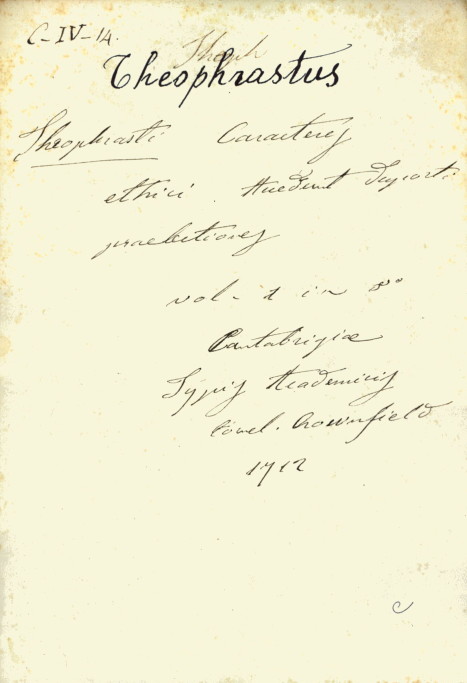 C-IV-14.
Theoph
Theophrastus
Theophrasti Caracteres
ethici. Accedunt Duporti
praelectiones
vol-1 in 8°
Cantabrigiae
Typis Academicis
Cornel. Crownfield
1712
C